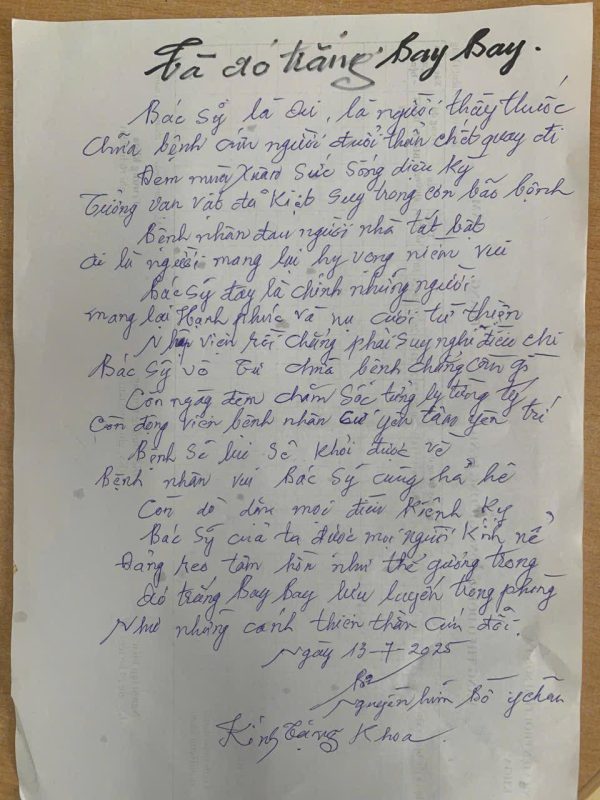 Tà áo trắng Bay Bay.
Bác sỹ là ai, là người thầy thuốc
chữa bệnh cứu người đuổi thần chết quay đi
Đem mùa Xuân Sức Sống diệu kỳ
Tưởng vạn vật đã Kiệt Suy trong cơn bão bệnh
Bệnh nhân đau người nhà tất bật
ai là người mang lại hy vọng niềm vui
Bác Sỹ đây là chính những người
mang lại Hạnh phúc và nụ cười từ thiện
Nhập viện rồi chẳng phải suy nghĩ điều chi
Bác Sỹ vô Tư chữa bệnh chẳng cần gì
Còn ngày đêm chăm Sóc từng ly từng tý
Còn động viên bệnh nhân Cứ yên tâm yên trí
Bệnh Sẽ lùi Sẽ Khỏi được về
Bệnh nhân vui Bác Sỹ cũng hả hê
Còn dò dặn mọi điều Kiêng Kỵ
Bác Sỹ của ta được mọi người Kính nể
Đáng reo tâm hồn như thể gương trong
áo trắng Bay Bay lưu luyến trong phòng
Như những cánh thiên thần Cứu đời.
Ngày 13-7-2025
Nguyễn
Bố y Châu
Kính Tặng Khoa.